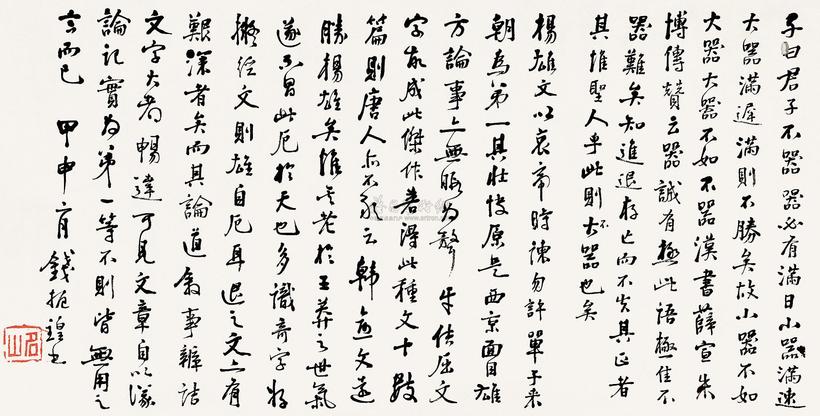 子曰君子不器器必有满日小器满速
大器满遲满則不勝矣故小器不如
大器大器不如不器漢書薛宣朱
博傳贊云器誠有極此語極佳不
器難矣知進退存亡而不失其正者
其惟聖人乎此則不大器也矣
楊雄文以哀帝時諫勿許單于来
朝為第一其壮快原是西京面目雄
方論事亡無暇为聱牙佶屈文
字故成此傑作若得此種文十數
篇則唐人亦不敢云韓愈文遠
勝楊雄矣惟其老於王莽之世氣
遂不昌此厄於天也多識奇字好
擬經文則雄自厄耳退之文亡有
艱深者矣而其論道叙事辨詰
文字大者暢達可見文章自以議
論記實为第一等不則皆無用之
言而已 甲申六月 錢振鍠书
名山